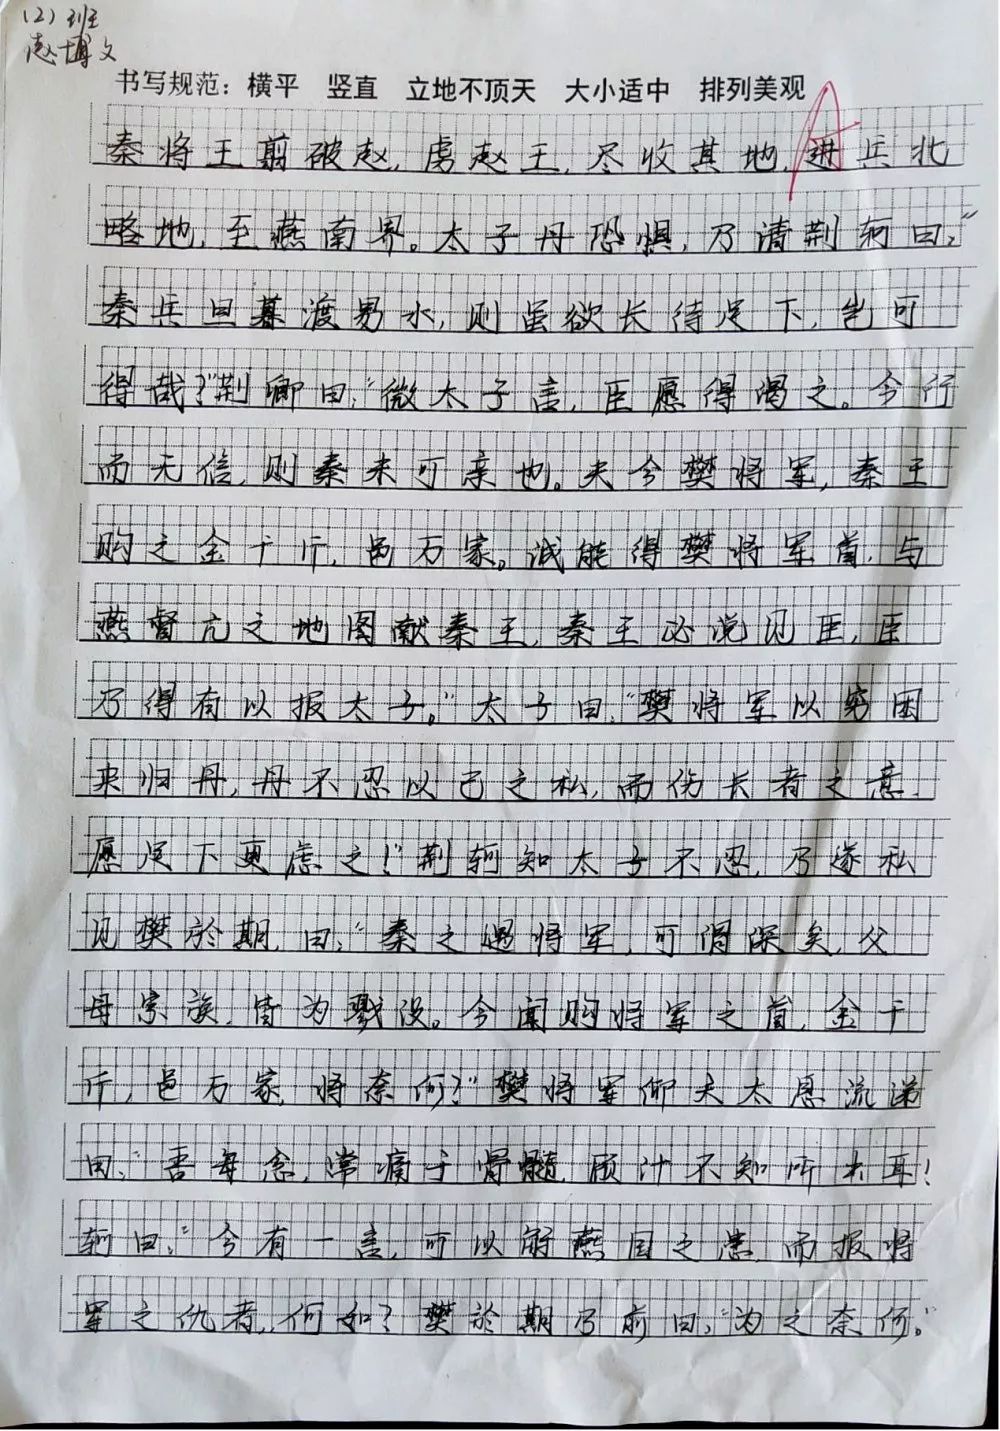 （2）班
赵博文
书写规范：横平 竖直 立地不顶天 大小适中 排列美观
秦将王翦破赵，虏赵王，尽收其地，进兵北
略地，至燕南界。太子丹恐惧，乃请荆轲曰：“
秦兵旦暮渡易水，则虽欲长侍足下，岂可
得哉？”荆卿曰：“微太子言，臣愿得谒之。今行
而无信，则秦未可亲也。夫今樊将军，秦王
购之金千斤，邑万家。诚能得樊将军首，与
燕督亢之地图献秦王，秦王必说见臣，臣
乃得有以报太子。”太子曰：“樊将军以穷困
来归丹，丹不忍以己之私，而伤长者之意，
愿足下更虑之！”荆轲知太子不忍，乃遂私
见樊於期，曰：“秦之遇将军，可谓深矣，父
母宗族，皆为戮没。今闻购将军之首，金千
斤，邑万家，将奈何？”樊将军仰天太愿流涕
曰：“吾每念，常痛于骨髓，顾计不知所出耳！
轲曰：“今有一言，可以解燕国之患，而报将
军之仇者，何如？樊於期乃前曰：“为之奈何。”